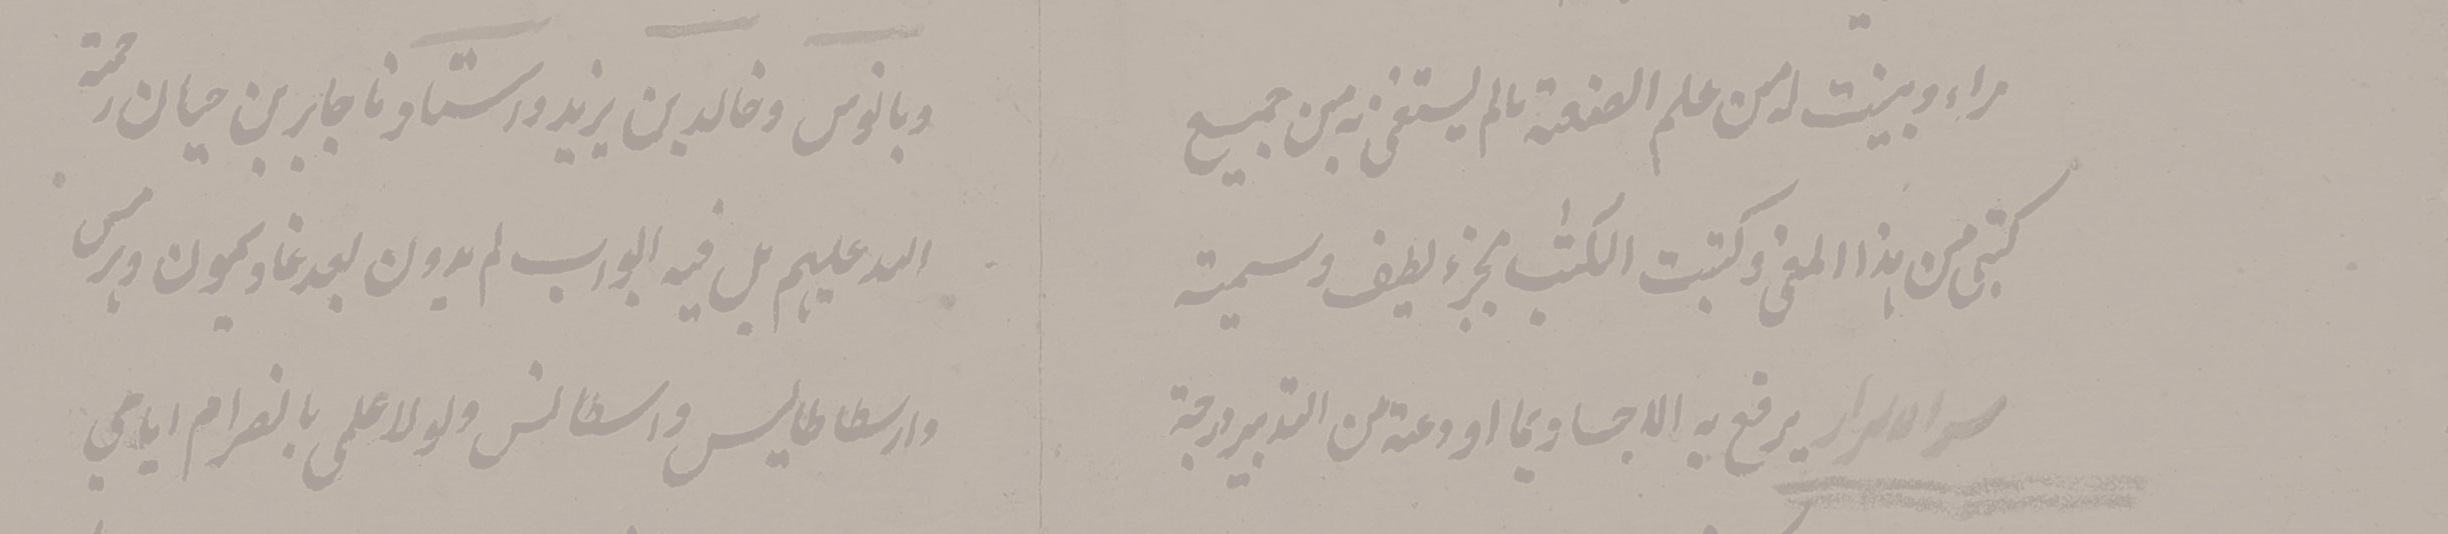 مراء وبينت له من علم الصنعة ما لم يستغنى به من جميع
كتبى من هذا المعنى وكتبت الكتب بجزء لطيف وسميته
سر الاسرار يرفع به الاجساد بما اودعته من التدبير درجة
وخالد بن يزيد واستادنا جابر بن حيان رحمة
الله عليهم بل فيه ابواب لم يدون بعد وهرمس
وارسطاطاليس ولولا علمى بانصرام ايامى